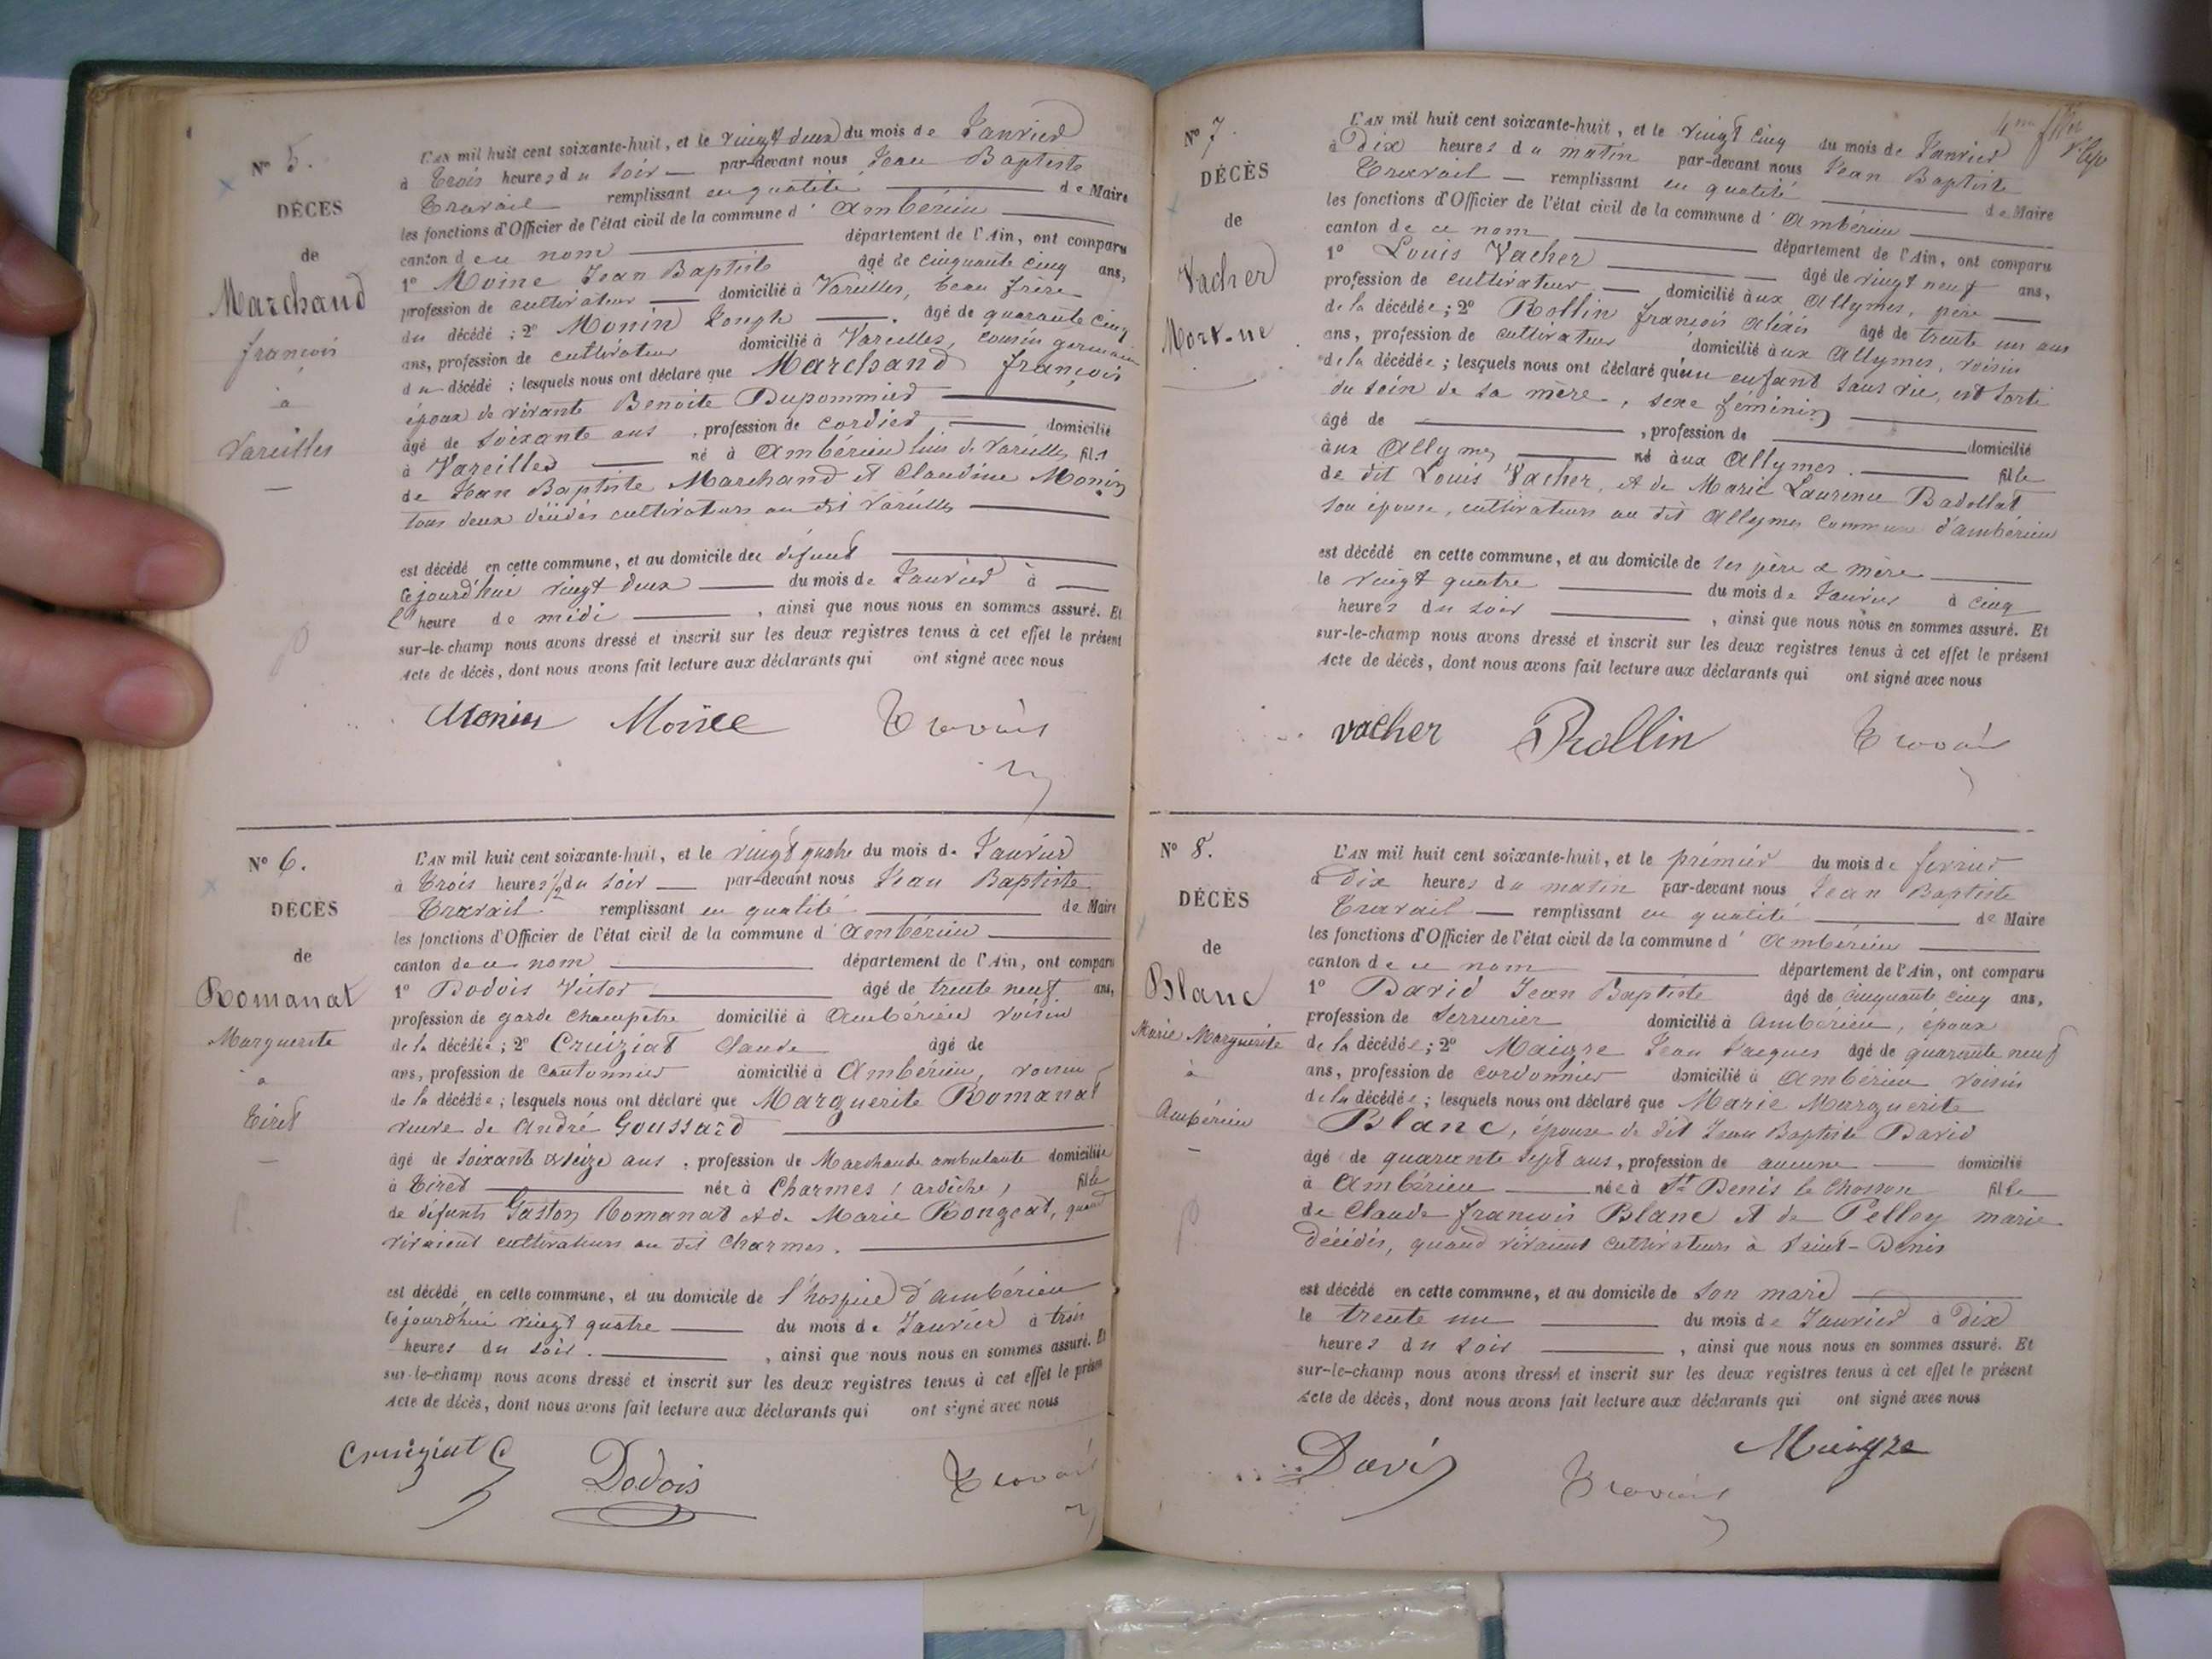 N° 5.
DÉCÈS
de
Marchand
françois
à
Vareilles
L'AN mil huit cent soixante-huit, et le vingt deux du mois de Janvier
à Trois heures du soir — par-devant nous Jean Baptiste
Travail remplissant en qualité — de Maire
les fonctions d'Officier de l'état civil de la commune d' Ambérieu —
canton de ce nom — département de l'Ain, ont comparu
1° Moine Jean Baptiste âgé de cinquante cinq ans,
profession de cultivateur — domicilié à Vareilles, beau frère
du décédé ; 2° Monin Joseph — . âgé de quarante cinq
ans, profession de cultivateur domicilié à Vareilles, cousin germain
du décédé ; lesquels nous ont déclaré que Marchand françois
époux de vivante Benoite Dupommier —
âgé de soixante ans , profession de cordier — domicilié
à Vareilles — né à Ambérieu lieu de Vareilles fils
de Jean Baptiste Marchand et Claudine Monin
tous deux décédés cultivateurs au dit Vareilles —
est décédé en cette commune, et au domicile du défunt —
cejourd'hui vingt deux — du mois de Janvier à —
l'heure de midi — , ainsi que nous nous en sommes assuré. Et
sur-le-champ nous avons dressé et inscrit sur les deux registres tenus à cet effet le présent
Acte de décès, dont nous avons fait lecture aux déclarants qui ont signé avec nous
Monin Moine Travail
N° 6.
DÉCÈS
de
Romanat
Marguerite
à
Tiret
L'AN mil huit cent soixante-huit, et le vingt quatre du mois de Janvier
à Trois heures 1/2 du soir — par-devant nous Jean Baptiste
Travail remplissant en qualité — de Maire
les fonctions d'Officier de l'état civil de la commune d' Ambérieu —
canton de ce nom — département de l'Ain, ont comparu
1° Dodois Victor — âgé de trente neuf ans,
profession de garde champêtre domicilié à Ambérieu voisin
de la décédée ; 2° Cruiziat Claude âgé de
ans, profession de Cantonnier domicilié à Ambérieu, voisin
de la décédée ; lesquels nous ont déclaré que Marguerite Romanat
veuve de André Goussard —
âgé de soixante &seize ans , profession de Marchande ambulante domiciliée
à Tiret — née à Charmes (ardèche) fille
de défunts Gaston Romanat et de Marie Rongeat, quand
vivaient cultivateurs au dit Charmes. —
est décédé en cette commune, et au domicile de l'hospice d'ambérieu
cejourd'hui vingt quatre — du mois de Janvier à trois
heures du soir. — , ainsi que nous nous en sommes assuré. Et
sur-le-champ nous avons dressé et inscrit sur les deux registres tenus à cet effet le présent
Acte de décès, dont nous avons fait lecture aux déclarants qui ont signé avec nous
Cruiziat C Dodois Travail
N° 7.
DÉCÈS
de
Vacher
Mort-né
L'AN mil huit cent soixante-huit, et le vingt cinq du mois de Janvier
à Dix heures du matin par-devant nous Jean Baptiste
Travail — remplissant en qualité — de Maire
les fonctions d'Officier de l'état civil de la commune d' Ambérieu —
canton de ce nom — département de l'Ain, ont comparu
1° Louis Vacher — âgé de vingt neuf ans,
profession de cultivateur — domicilié aux Allymes, père —
de la décédée ; 2° Rollin françois alexis âgé de trente un ans
ans, profession de cultivateur domicilié aux Allymes, voisin
de la décédée ; lesquels nous ont déclaré qu'un enfant sans vie, est sorti
du sein de sa mère, sexe féminin —
âgé de — , profession de — domicilié
aux Allymes — né aux Allymes. — fille
de dit Louis Vacher, et de Marie Laurence Badollat
son épouse, cultivateurs au dit Allymes commune d'ambérieu
est décédé en cette commune, et au domicile de ses père & mère —
le vingt quatre — du mois de Janvier à cinq
heures du soir — , ainsi que nous nous en sommes assuré. Et
sur-le-champ nous avons dressé et inscrit sur les deux registres tenus à cet effet le présent
Acte de décès, dont nous avons fait lecture aux déclarants qui ont signé avec nous
vacher Rollin Travail
N° 8.
DÉCÈS
de
Blanc
Marie Marguerite
à
Ambérieu
L'AN mil huit cent soixante-huit, et le premier du mois de fevrier
à Dix heures du matin par-devant nous Jean Baptiste
Travail — remplissant en qualité — de Maire
les fonctions d'Officier de l'état civil de la commune d' Ambérieu —
canton de ce nom — département de l'Ain, ont comparu
1° David Jean Baptiste âgé de cinquante cinq ans,
profession de Serrurier domicilié à Ambérieu, époux
de la décédée ; 2° Maigre Jean Jacques âgé de quarante neuf
ans, profession de cordonnier domicilié à Ambérieu voisin
de la décédée ; lesquels nous ont déclaré que Marie Marguerite
Blanc, épouse de dit Jean Baptiste David
âgé de quarante sept ans, profession de aucune — domicilié
à Ambérieu — née à St Denis le Chosson fille
de Claude françois Blanc et de Pelley marie
Décédés, quand vivaient cultivateurs à Saint-Denis
est décédé en cette commune, et au domicile de son mari —
le trente un — du mois de Janvier à Dix
heures du soir — , ainsi que nous nous en sommes assuré. Et
sur-le-champ nous avons dressé et inscrit sur les deux registres tenus à cet effet le présent
Acte de décès, dont nous avons fait lecture aux déclarants qui ont signé avec nous
David Travail Maigre